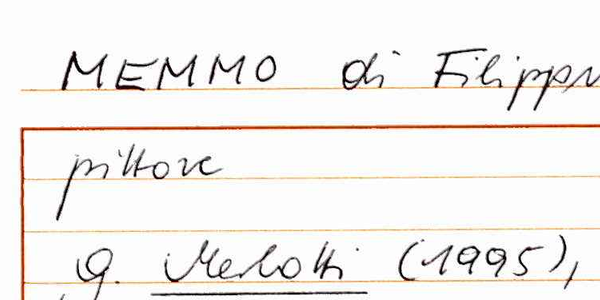 MEMMO di Filippu
pittore
G. Merlotti (1995),